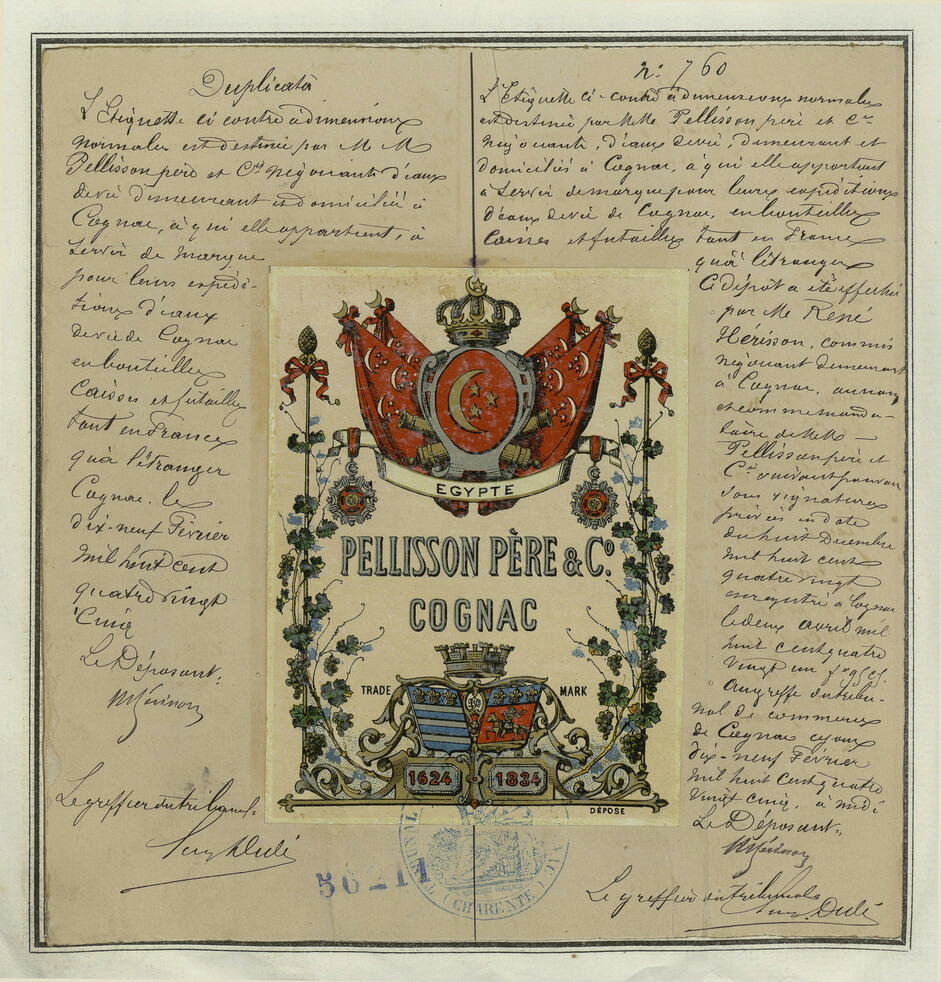 Duplicata
L'Etiquette ci contre à dimensions
normales est destinée par M M
Pellisson père et Cie Négociants d'eaux
de vie demeurant et domiciliés à
Cognac, à qui elle appartient, à
servir de marque
pour leurs expédi-
tions d'eaux
de vie de Cognac
en bouteilles
Caisses et futailles
tant en France
qu'à l'étranger
Cognac, le
dix-neuf Février
mil huit cent
quatre vingt
Cinq
Le Déposant:
Le greffier du tribunal
50211
no 760
L'Etiquette ci-contre à dimensions normales
est destinée par M M Pellisson père et Cie
négociants, d'eaux de vie, demeurant et
domiciliés à Cognac, à qui elle appartient
à servir de marque pour leurs expéditions
d'eaux de vie de Cognac, en bouteilles
Caisses et futailles tant en France
qu'à l'étranger
Ce dépôt a été effectué
par Mr René
Hérisson, commis
négociant demeurant
à Cognac, au nom
et comme manda-
taire de MM
Pellisson père et
Cie suivant pouvoir
sous signatures
privées en date
du huit Décembre
mil huit cent
quatre vingt
enregistré à Cognac
le deux avril mil
huit cent quatre
vingt un
au greffe du tribu-
nal de commerce
de Cognac ce jour
dix-neuf Février
mil huit cent quatre
vingt cinq, à midi
Le Déposant:
Le greffier du tribunal
EGYPTE
PELLISSON PÈRE & Co.
COGNAC
TRADE MARK
1624 1834
DÉPOSÉ
TRIBUNAL
(CHARENTE)